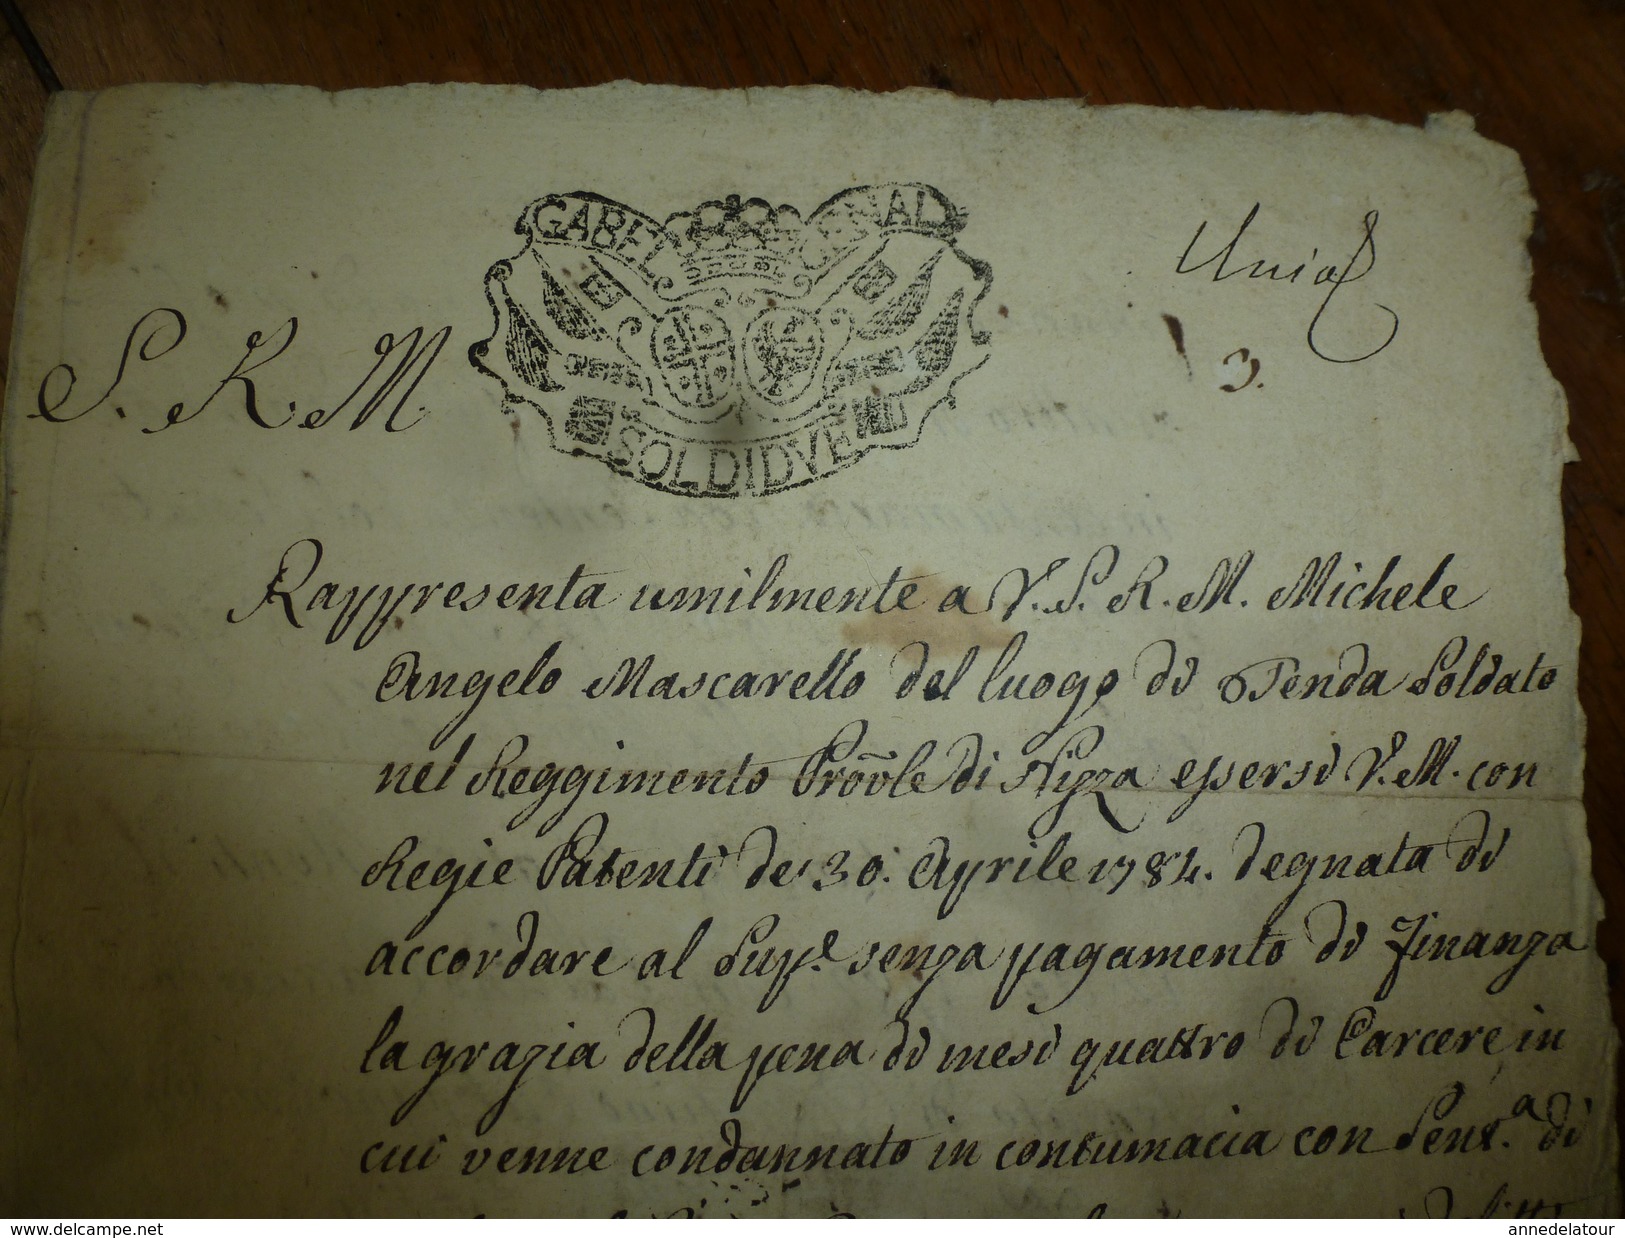 GABEL GNAL
SOLDI DVE
S. R. M.
3.
Rappresenta umilmente a V. S. R. M. Michele
Angelo Mascarello del luogo di Tenda Soldato
nel Reggimento Prov̄le di Nizza essersi V. M. con
Regie Patenti de' 30. Aprile 1784. degnata di
accordare al Supe. senza pagamento di Finanza
la grazia della pena di mesi quattro di Carcere in
cui venne condannato in contumacia con Sent.a di
www.delcampe.net
annedelatour